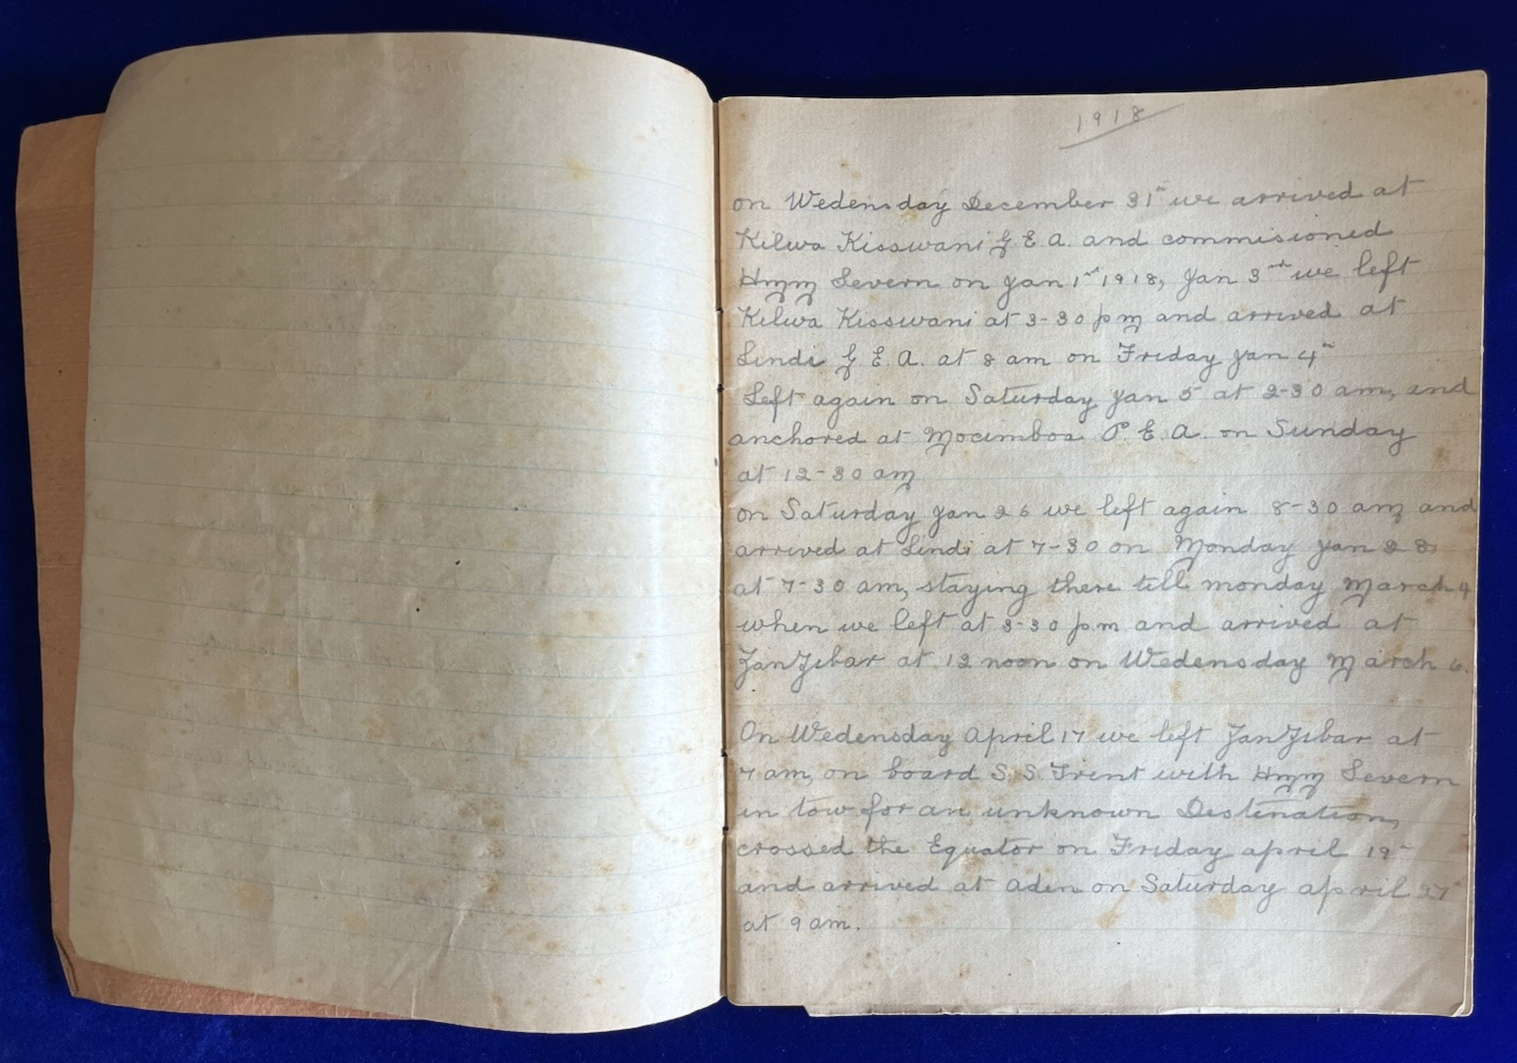 1918
on Wedensday December 31st we arrived at
Kilwa Kisswani G. E. A. and commisioned
Hmm Severn on Jan 1st 1918, Jan 3rd we left
Kilwa Kisswani at 3-30 pm and arrived at
Lindi G. E. A. at 8 am on Friday Jan 4th
Left again on Saturday Jan 5 at 2-30 am, and
anchored at Mocimboa P. E. A. on Sunday
at 12-30 am
on Saturday Jan 26 we left again 8-30 am and
arrived at Lindi at 7-30 on Monday Jan 28
at 7-30 am, staying there till monday March 4
when we left at 3-30 pm and arrived at
ZanZibar at 12 noon on Wedensday March 6.
On Wedensday April 17 we left ZanZibar at
7 am, on board S. S. Trent with Hmm Severn
in tow for an unknown Destination,
crossed the Equator on Friday april 19
and arrived at aden on Saturday april 27
at 9 am.